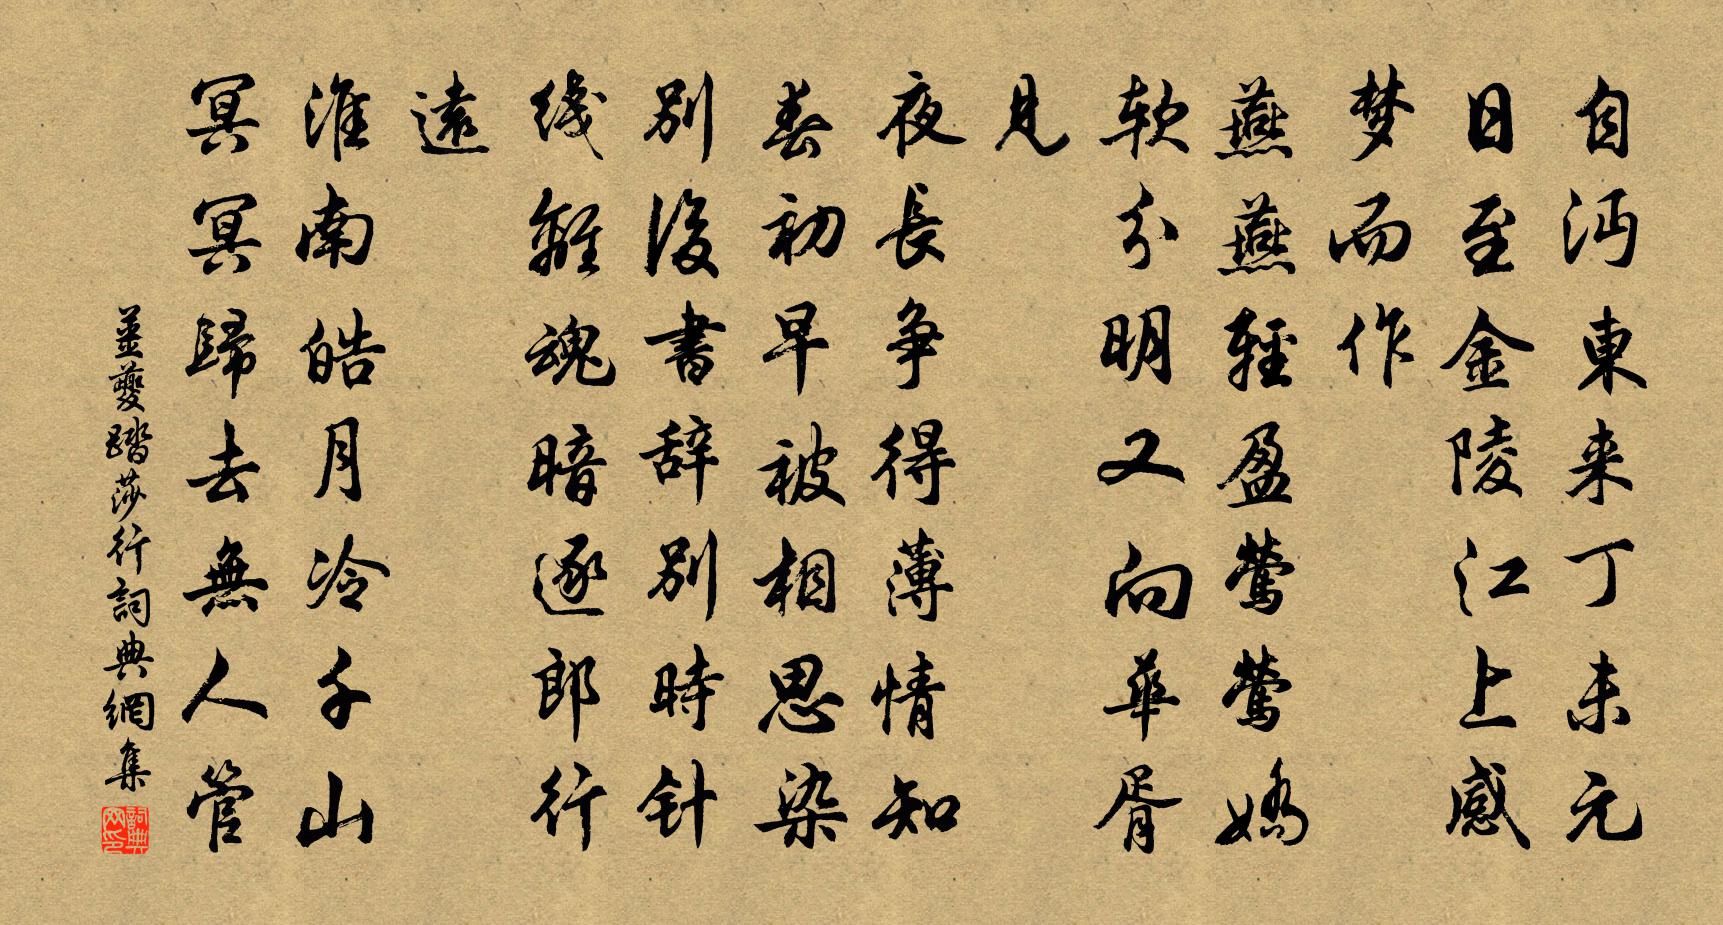 自沔東来丁未元
日至金陵江上感
梦而作
燕燕輕盈莺莺嬌
软分明又向華胥
見
夜長争得薄情知
春初早被相思染
别後書辞别時针
线離魂暗逐郎行
遠
淮南皓月冷千山
冥冥歸去無人管
姜夔踏莎行詞典網集
詞典网印